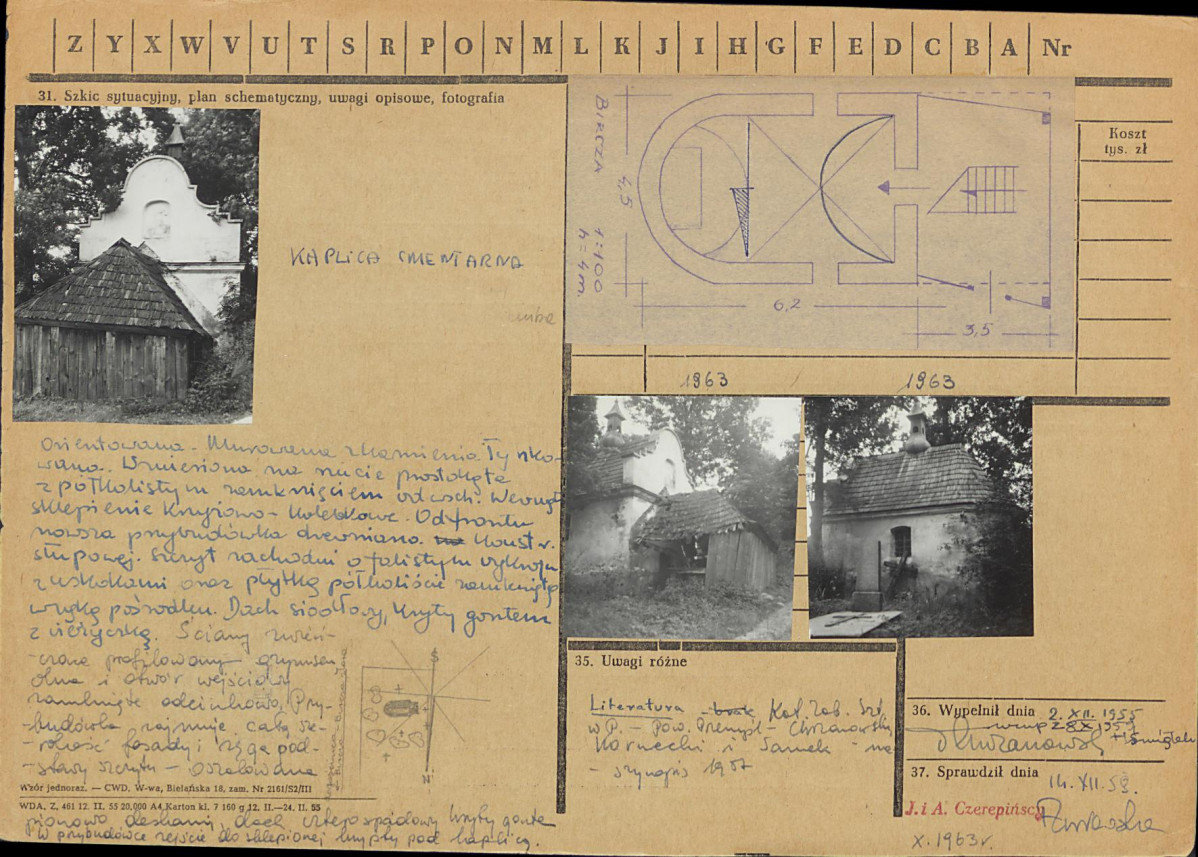 Z Y X W V U T S R P O N M L K J I H G F E D C B A Nr
31. Szkic sytuacyjny, plan schematyczny, uwagi opisowe, fotografia
KAPLICA CMENTARNA
BIRCZA 1:100
h=4m.
4,5
6,2
3,5
Koszt
tys. zł
1963
1963
Orientowana. Murowana z kamienia. Tynko-
wana. Wzniesiona na rzucie prostokąta
z półkolistym zamknięciem od wsch. Wewnątrz
sklepienie krzyżowo-kolebkowe. Od frontu
nowsza przybudówka drewniana konstr.
słupowej. Szczyt zachodni o falistym wykroju
z uskokami oraz płytką półkoliście zamkniętą
wnęką pośrodku. Dach siodłowy, kryty gontem
z wieżyczką. Ściany zwień-
czone profilowanym gzymsem
Okna i otwór wejściowy
zamknięte odcinkowo. Przy-
-budówka zajmuje całą sze-
-rokość fasady i sięga pod-
-stawy szczytu - oszalowana
pionowo deskami, dach czterospadowy kryty gontem
W przybudówce zejście do sklepionej krypty pod kaplicą.
S
N
Wzór jednoraz. — CWD, W-wa, Bielańska 18, zam. Nr 2161/S2/III
WDA, Z. 461 12. II. 55 20.000 A4 Karton kl. 7 160 g 12. II.—24. II. 55
35. Uwagi różne
Literatura - brak Kat. Zab. Szt.
w P. - Pow. Przemyśl - Chrzanowski,
Kornecki i Samek - ma-
- szynopis 1957
36. Wypełnił dnia 2. XII. 1955
Chrzanowski
37. Sprawdził dnia
14. XII. 58.
J. i A. Czerepińscy
X. 1963 r.